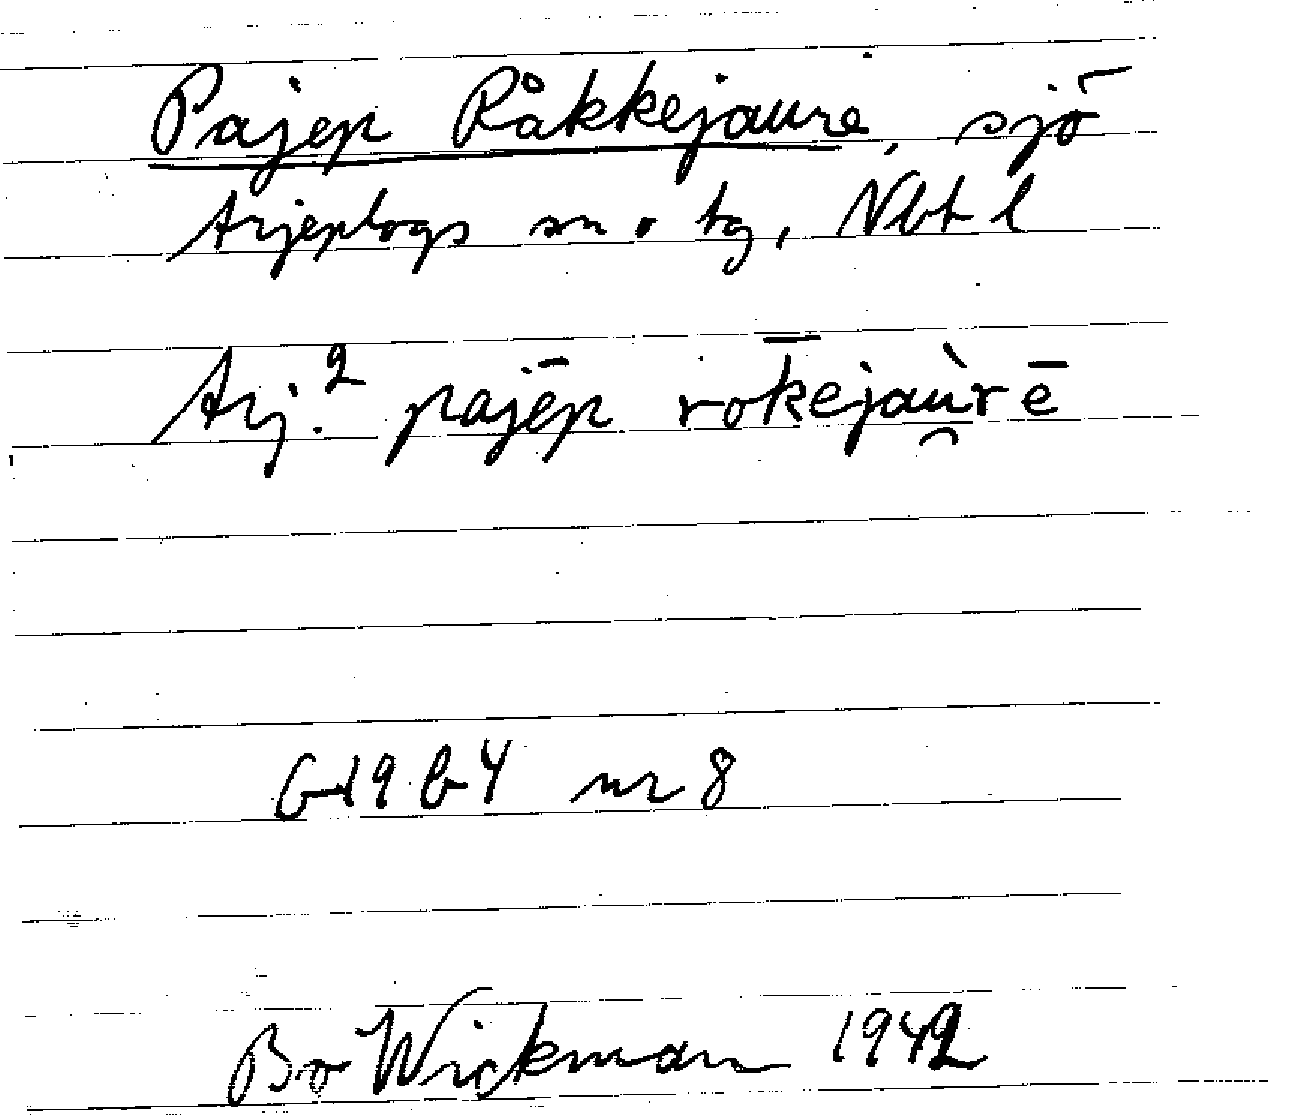 Pajep Råkkejaure, sjö
Arjeplogs sn o tg, Nbt l
Arj.² pajēp rok̄ejaù̯rē
G19 b 4 nr 8
Bo Wickman 1942